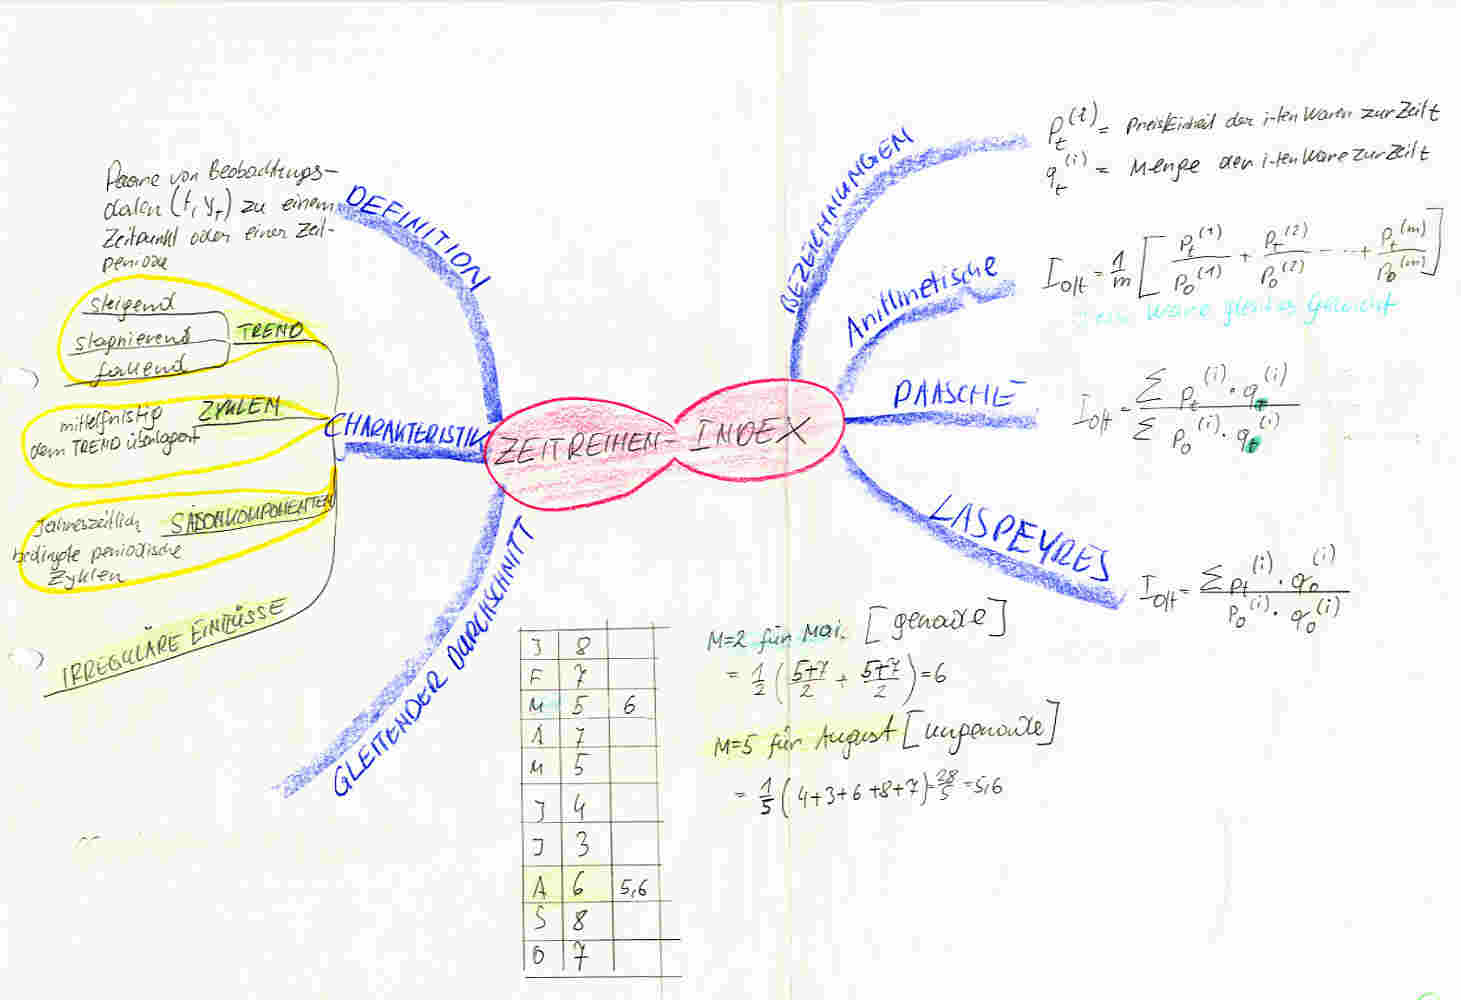 ZEITREIHEN-INDEX
DEFINITION
Paare von Beobachtungs-
daten (t, yt) zu einem
Zeitpunkt oder einer Zeit-
periode
CHARAKTERISTIK
TREND
steigend
stagnierend
fallend
ZYKLEN
mittelfristig
dem TREND überlagert
SAISONKOMPONENTEN
Jahreszeitlich
bedingte periodische
Zyklen
IRREGULÄRE EINFLÜSSE
GLEITENDER DURCHSCHNITT
J 8
F 7
M 5 6
A 7
M 5
J 4
J 3
A 6 5,6
S 8
O 7
M=2 für Mai. [gerade]
= 1/2 ( (5+7)/2 + (5+7)/2 ) = 6
M=5 für August [ungerade]
= 1/5 ( 4+3+6+8+7 ) = 28/5 = 5,6
BEZEICHNUNGEN
Pt(i) = Preis/Einheit der i-ten Waren zur Zeit t
qt(i) = Menge der i-ten Ware zur Zeit t
Arithmetische
I0/t = 1/m [ Pt(1)/P0(1) + Pt(2)/P0(2) --- + Pt(m)/P0(m) ]
jede Ware gleiches Gewicht
PAASCHE
I0/t = Σ Pt(i) · qt(i) / Σ P0(i) · qt(i)
LASPEYRES
I0/t = Σ Pt(i) · q0(i) / P0(i) · q0(i)